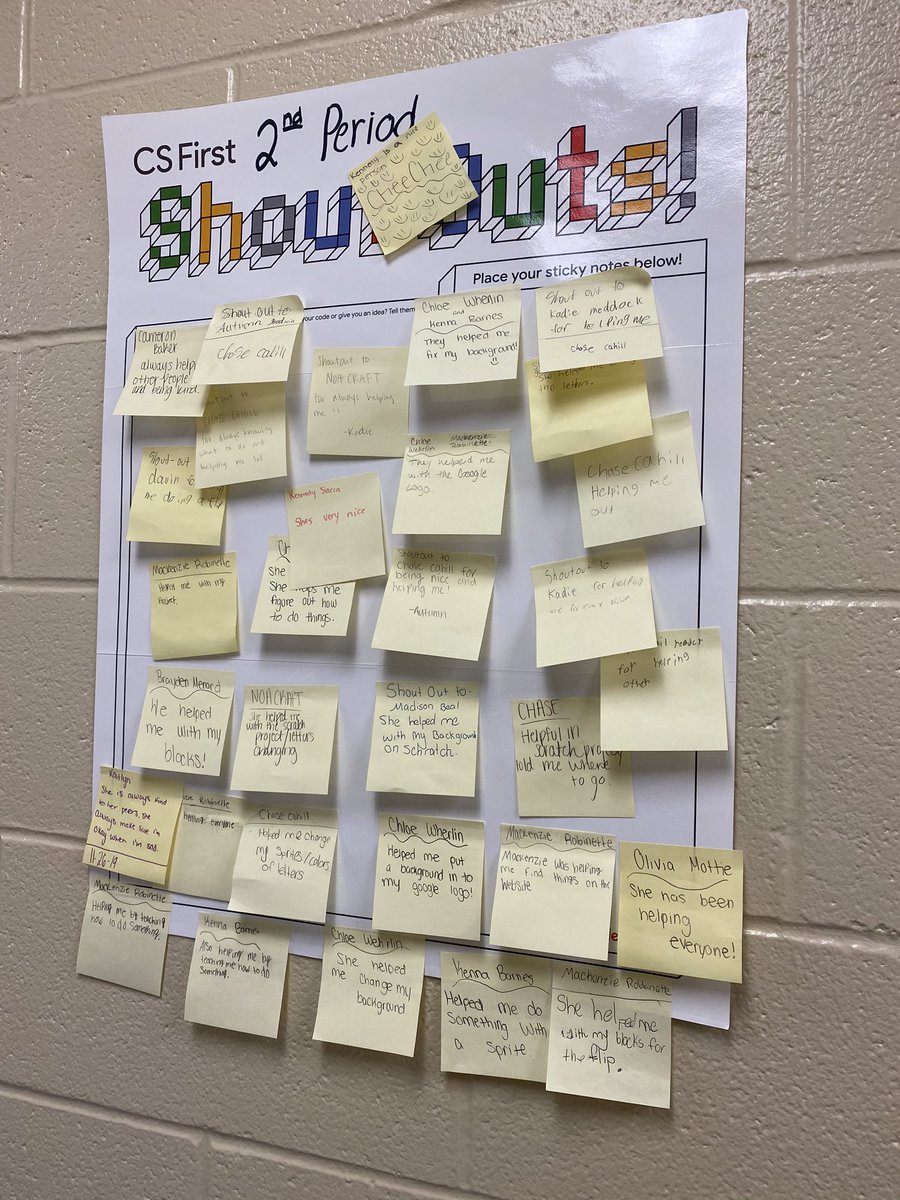 CS First
2nd Period
Shout outs!
Kennedy is a nice
person
CheeChee
Place your sticky notes below!
your code or give you an idea? Tell them
Cameron
Baker
always help
other people
and being kind.
Shout out to
Autumn
Chase cahill
Shoutout to
NOA CRAFT
for always helping
me !!
-Kadie
Chloe Wherlin
and
Kenna Barnes
They helped me
fix my background!
Shout out to
Kadie meddock
for helping me
Chase cahill
She helped me
the letters.
CHASE CAHILL
for always knowing
what to do and
helping me lol
Shout-out
davin
me doing a
Kennedy Siacca
Shes very nice
Chloe Mackenzie
Wehrlin Robinette
They helped me
with the Google
Logo.
Chase Cahill
Helping me
out
Mackenzie Robinette
Helped me with my
Project.
She helps me
figure out how
to do things.
Shoutout to
Chase cahill for
being nice and
helping me!
-Autumn
Shoutout to
Kadie for helping
me
for helping
other
Brayden Menard
He helped
me with my
blocks!
NOA CRAFT
She helped me
with the scratch
project/letters
changing
Shout Out to-
Madison Beal
She helped me
with my Background
on Schratch.
CHASE
Helpful in
scratch project
told me where
to go!
Kaitlyn
She is always kind
to her peers, she
always make sure I'm
okay when I'm sad.
11-26-19
Robinette
helping everyone
Chase cahill
Helped me change
my sprites/colors
of letters
Chloe Wherlin
Helped me put
a background in to
my google logo!
Mackenzie Robinette
Mackenzie was helping
me find things on the
website
Olivia Mattie
She has been
helping
everyone!
Mackenzie Robinette
Helping me by teaching
how to do something
Kenna Barnes
Also helping me by
teaching me how to do
something
Chloe Wehrlin
She helped
me change my
background
Kenna Barnes
Helped me do
something with
a sprite
Mackenzie Robinette
She helped me
with my blocks for
the flip.